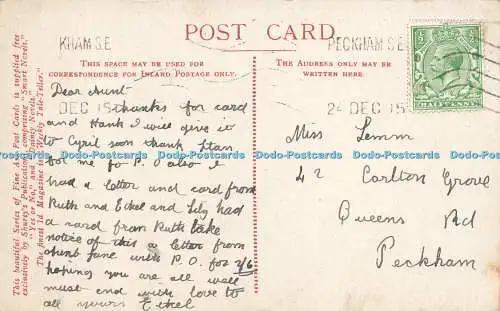 POST CARD
KHAM S.E
DEC 15
PECKHAM S.E
24 DEC 15
HALFPENNY
THIS SPACE MAY BE USED FOR
CORRESPONDENCE FOR INLAND POSTAGE ONLY.
THE ADDRESS ONLY MAY BE
WRITTEN HERE.
This beautiful Series of Fine Art Post Cards is supplied free
exclusively by Shurey's Publications, comprising "Smart Novels,"
"Yes or No," and "Dainty Novels."
The finest 1d. Magazine is "Weekly Tale-Teller."
Dear Aunt
thanks for card
and Hank I will give it
to Cyril soon thank Stan
for me for P.O also I
had a letter and card from
Ruth and Ethel and Lily had
a card from Ruth take
notice of this a letter from
Aunt Jane with P.O. for 2/6
hoping you are all well
must end with love to
all yours Ethel
Miss Lemm
42 Carlton Grove
Queens Rd
Peckham
Dodo-Postcards Dodo-Postcards Dodo-Postcards Dodo-Postcards Dodo-Postcards Dodo-Postcards